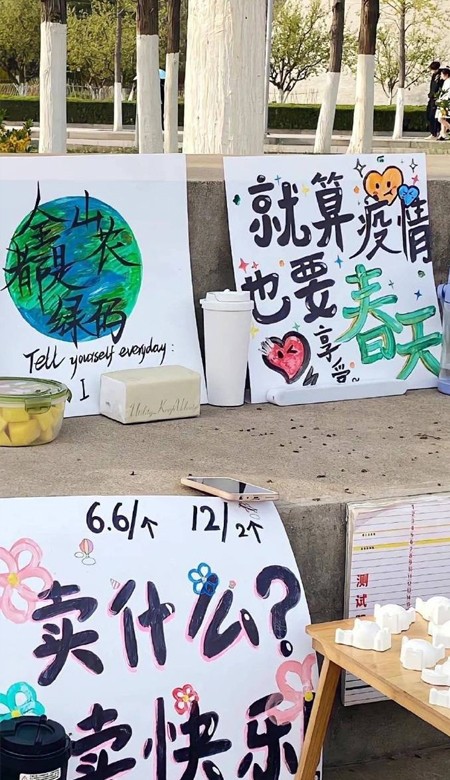 全山农
都是
绿码
Tell yourself everyday:
I
就算疫情
也要春天
享受~
6.6/个 12/2个
卖什么?
卖快乐
测试